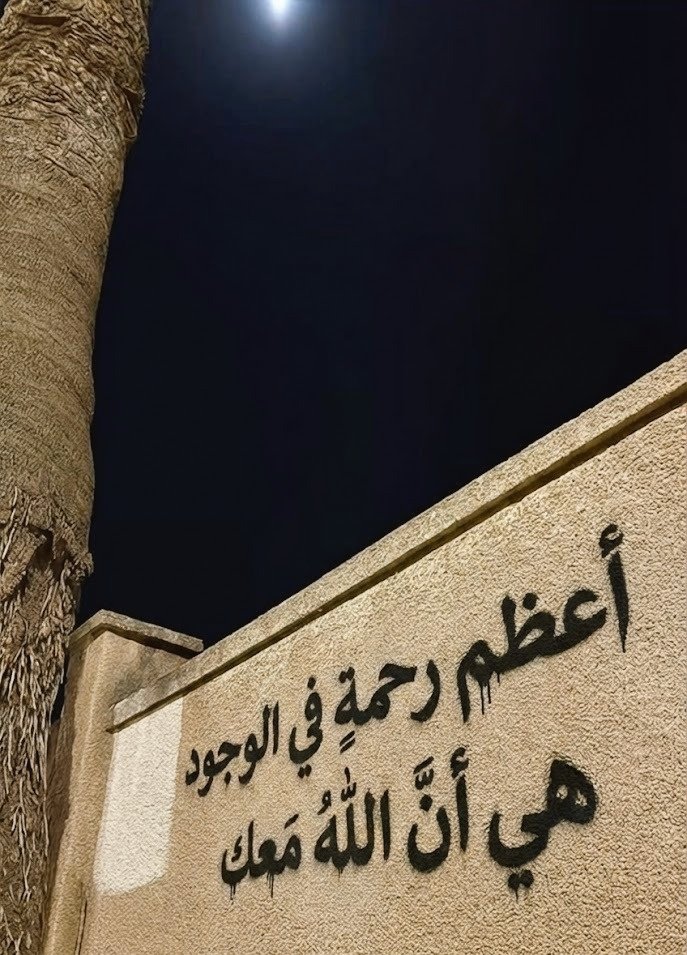 أعظم رحمةٍ في الوجود
هي أنَّ اللهُ مَعك